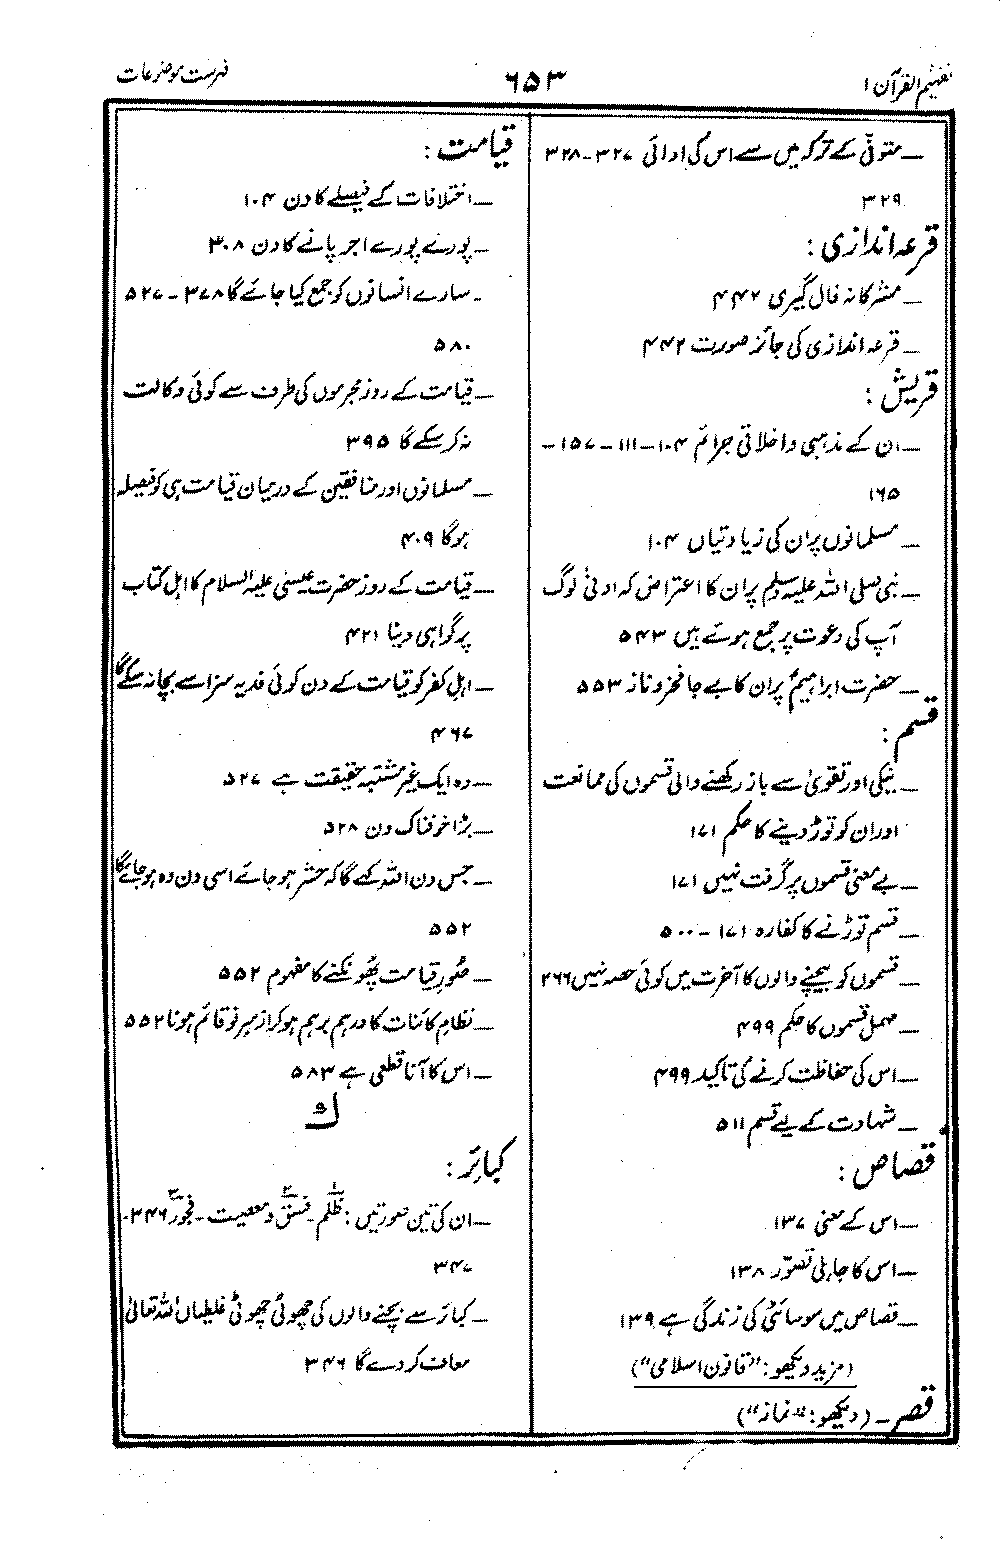 تفہیم القرآن ۱
۶۵۳
فہرست موضوعات
ـــ متوفّٰی کے ترکہ میں سے اس کی ادائی ۳۲۷-۳۲۸
۳۲۹
قرعہ اندازی :
ـــ مشرکانہ فال گیری ۴۴۲
ـــ قرعہ اندازی کی جائز صورت ۴۴۲
قریش :
ـــ ان کے مذہبی و اخلاقی جرائم ۱۰۴-۱۱۱-۱۵۷-
۱۶۵
ـــ مسلمانوں پر ان کی زیادتیاں ۱۰۴
ـــ نبی صلی اللہ علیہ وسلم پر ان کا اعتراض کہ ادنیٰ لوگ
آپ کی دعوت پر جمع ہوئے ہیں ۵۴۳
ـــ حضرت ابراہیمؑ پر ان کا بے جا فخر و ناز ۵۵۳
قسم :
ـــ نیکی اور تقویٰ سے باز رکھنے والی قسموں کی ممانعت
اور ان کو توڑ دینے کا حکم ۱۷۱
ـــ بے معنی قسموں پر گرفت نہیں ۱۷۱
ـــ قسم توڑنے کا کفارہ ۱۷۱-۵۰۰
ـــ قسموں کو بیچنے والوں کا آخرت میں کوئی حصہ نہیں ۲۶۶
ـــ مہمل قسموں کا حکم ۴۹۹
ـــ اس کی حفاظت کرنے کی تاکید ۴۹۹
ـــ شہادت کے لیے قسم ۵۱۱
قصاص :
ـــ اس کے معنی ۱۳۷
ـــ اس کا جاہلی تصوّر ۱۳۸
ـــ قصاص میں سوسائٹی کی زندگی ہے ۱۳۹
(مزید دیکھو: "قانون اسلامی")
قصر ـ (دیکھو: "نماز")
قیامت :
ـــ اختلافات کے فیصلے کا دن ۱۰۴
ـــ پورے پورے اجر پانے کا دن ۳۰۸
ـــ سارے انسانوں کو جمع کیا جائے گا ۳۷۸-۵۲۷
۵۸۰
ـــ قیامت کے روز مجرموں کی طرف سے کوئی وکالت
نہ کر سکے گا ۳۹۵
ـــ مسلمانوں اور منافقین کے درمیان قیامت ہی کو فیصلہ
ہوگا ۴۰۹
ـــ قیامت کے روز حضرت عیسیٰ علیہ السلام کا اہل کتاب
پر گواہی دینا ۴۲۱
ـــ اہلِ کفر کو قیامت کے دن کوئی فدیہ سزا سے بچا نہ سکے گا
۴۶۷
ـــ وہ ایک غیر مشتبہ حقیقت ہے ۵۲۷
ـــ بڑا خوفناک دن ۵۲۸
ـــ جس دن اللہ کہے گا کہ حشر ہو جائے اسی دن وہ ہو جائے گا
۵۵۲
ـــ صُورِ قیامت پھُونکنے کا مفہوم ۵۵۲
ـــ نظامِ کائنات کا درہم برہم ہو کر از سرِ نو قائم ہونا ۵۵۲
ـــ اس کا آنا قطعی ہے ۵۸۳
ک
کبائر :
ـــ ان کی تین صورتیں : ۱ ظلم - ۲ فسق و معصیت - ۳ فجور ۳۴۶-
۳۴۷
ـــ کبائر سے بچنے والوں کی چھوٹی چھوٹی غلطیاں اللہ تعالیٰ
معاف کر دے گا ۳۴۶